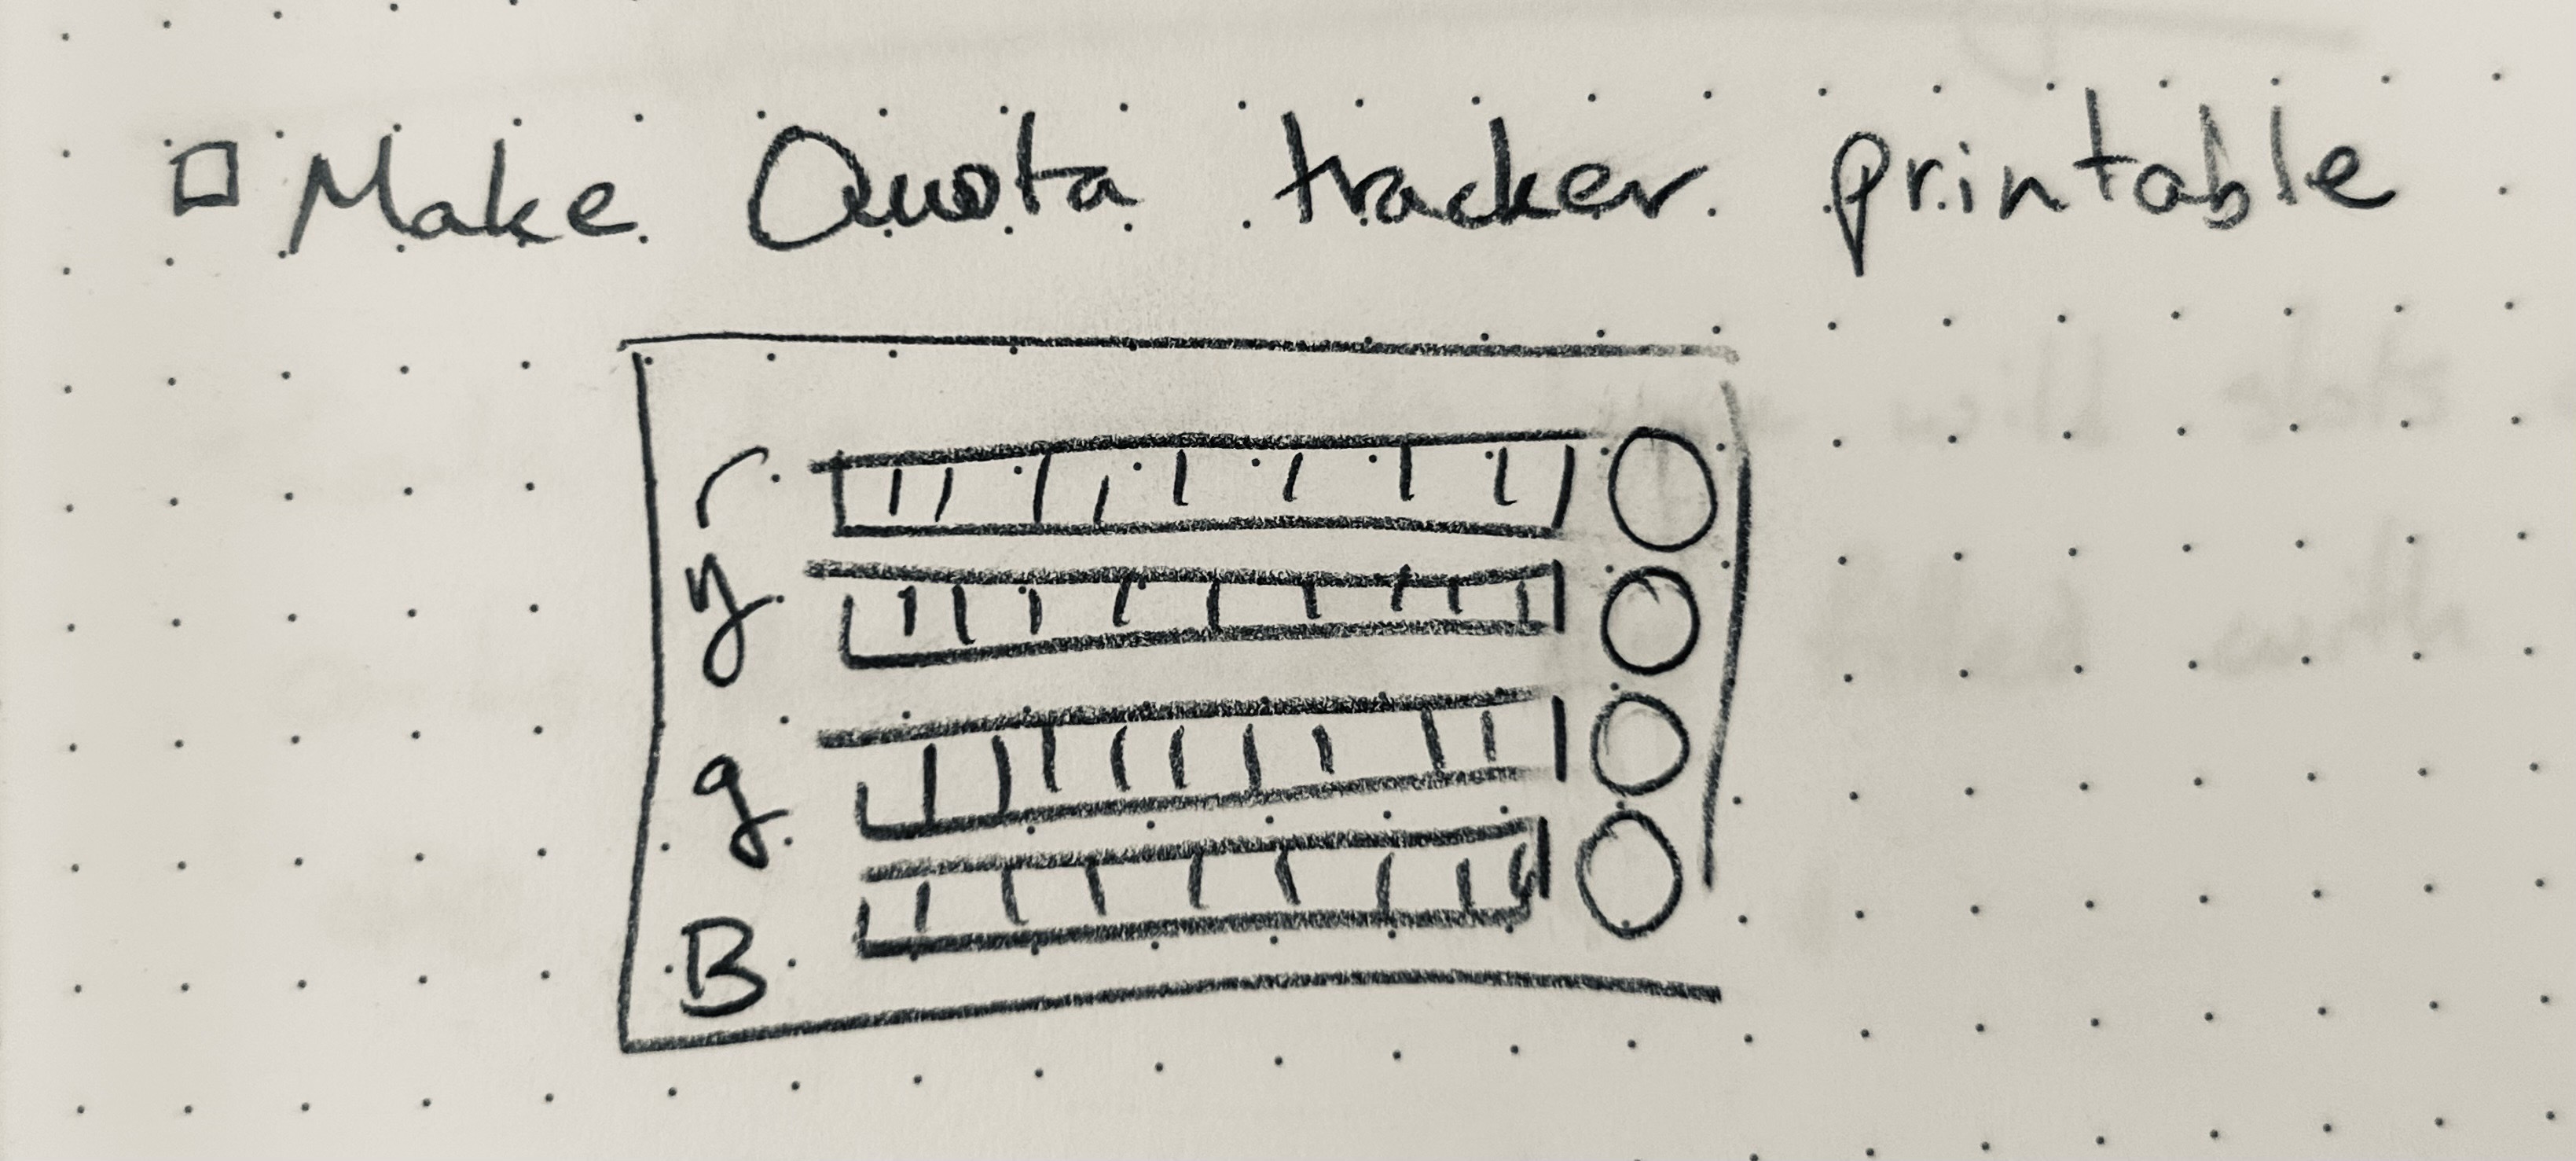 Make Quota tracker printable
r
y
g
B